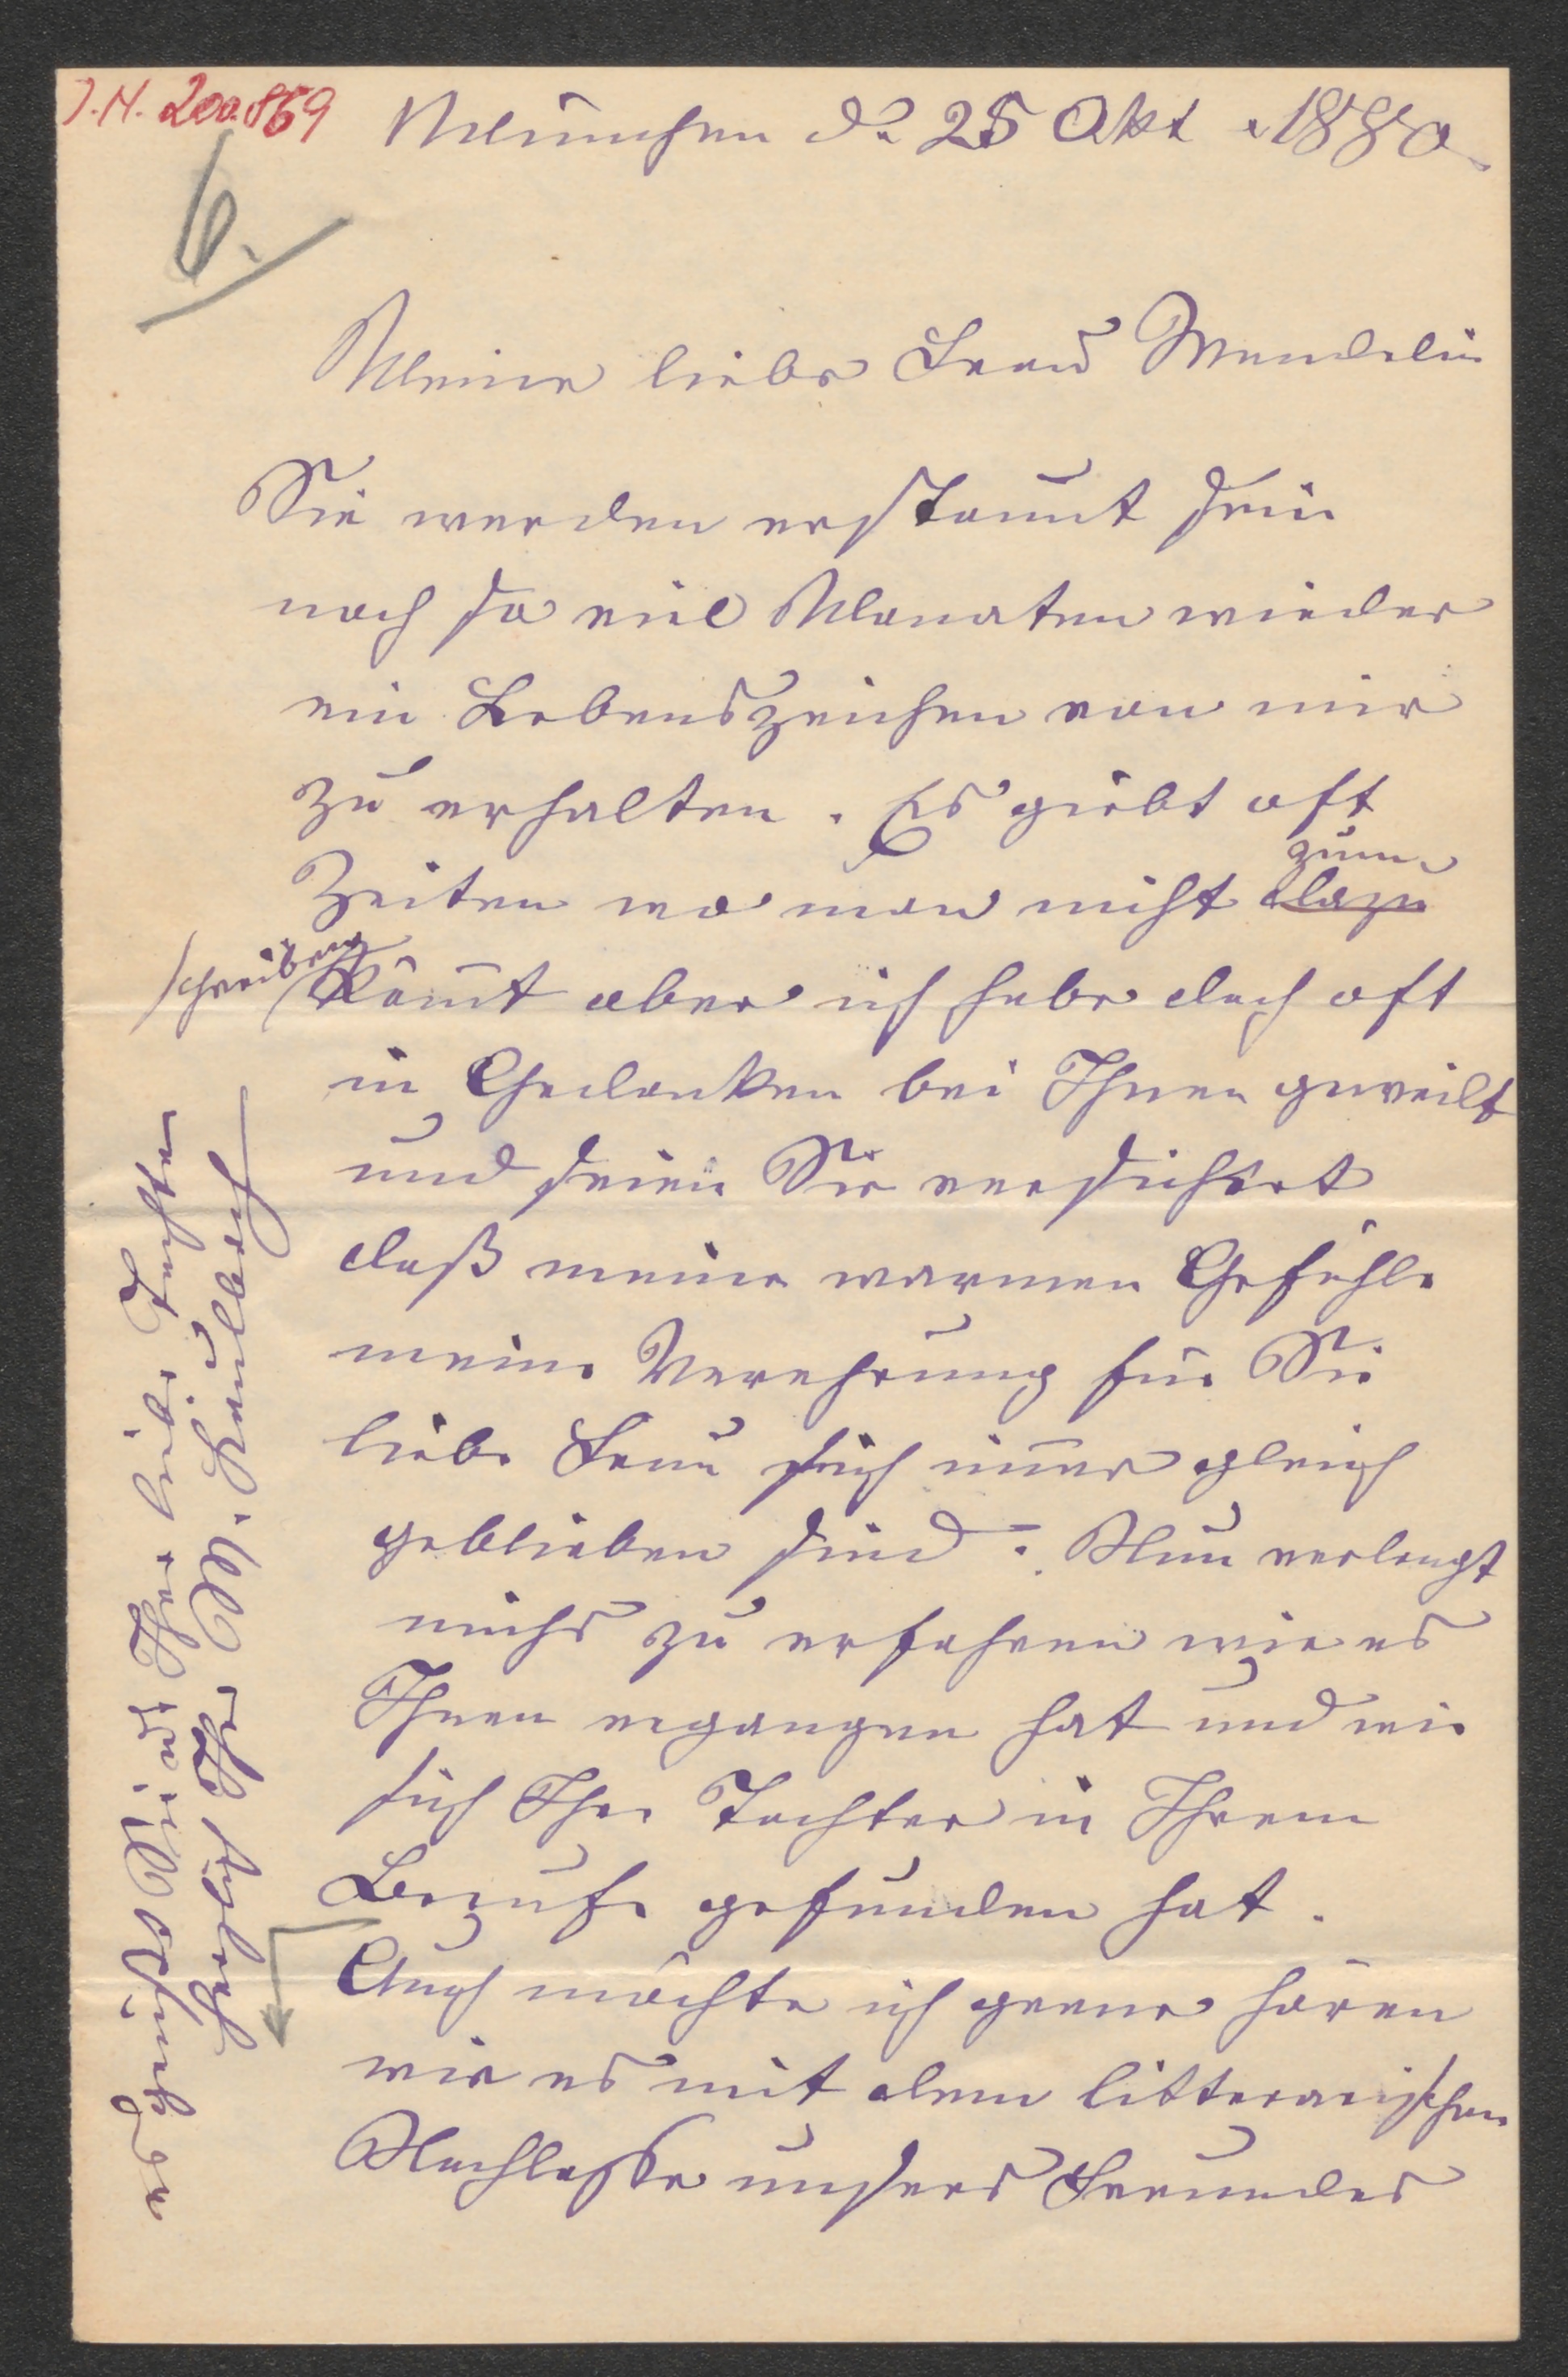 J.N. 200.869
München d. 25 Okt. 1880
6.
Meine liebe Frau Wendelin
Sie werden erstaunt sein
nach so viel Monaten wieder
ein Lebenszeichen von mir
zu erhalten. Es giebt oft
Zeiten wo man nicht dazu zum
schreiben kom̄t aber ich habe doch oft
in Gedanken bei Ihnen geweilt
und seien Sie versichert
daß meine warmen Gefühle
meine Verehrung für Sie
liebe Frau sich im̄er gleich
geblieben sind. Nun verlangt
michs zu erfahren wie es
Ihnen ergangen hat und wie
sich Ihre Tochter in Ihrem
Berufe gefunden hat.
Auch möchte ich gerne hören
wie es mit dem litterarischen
Nachlasse unseres Freundes
Ihre liebe Tochter
herzlich Ihre M. Kaulbach